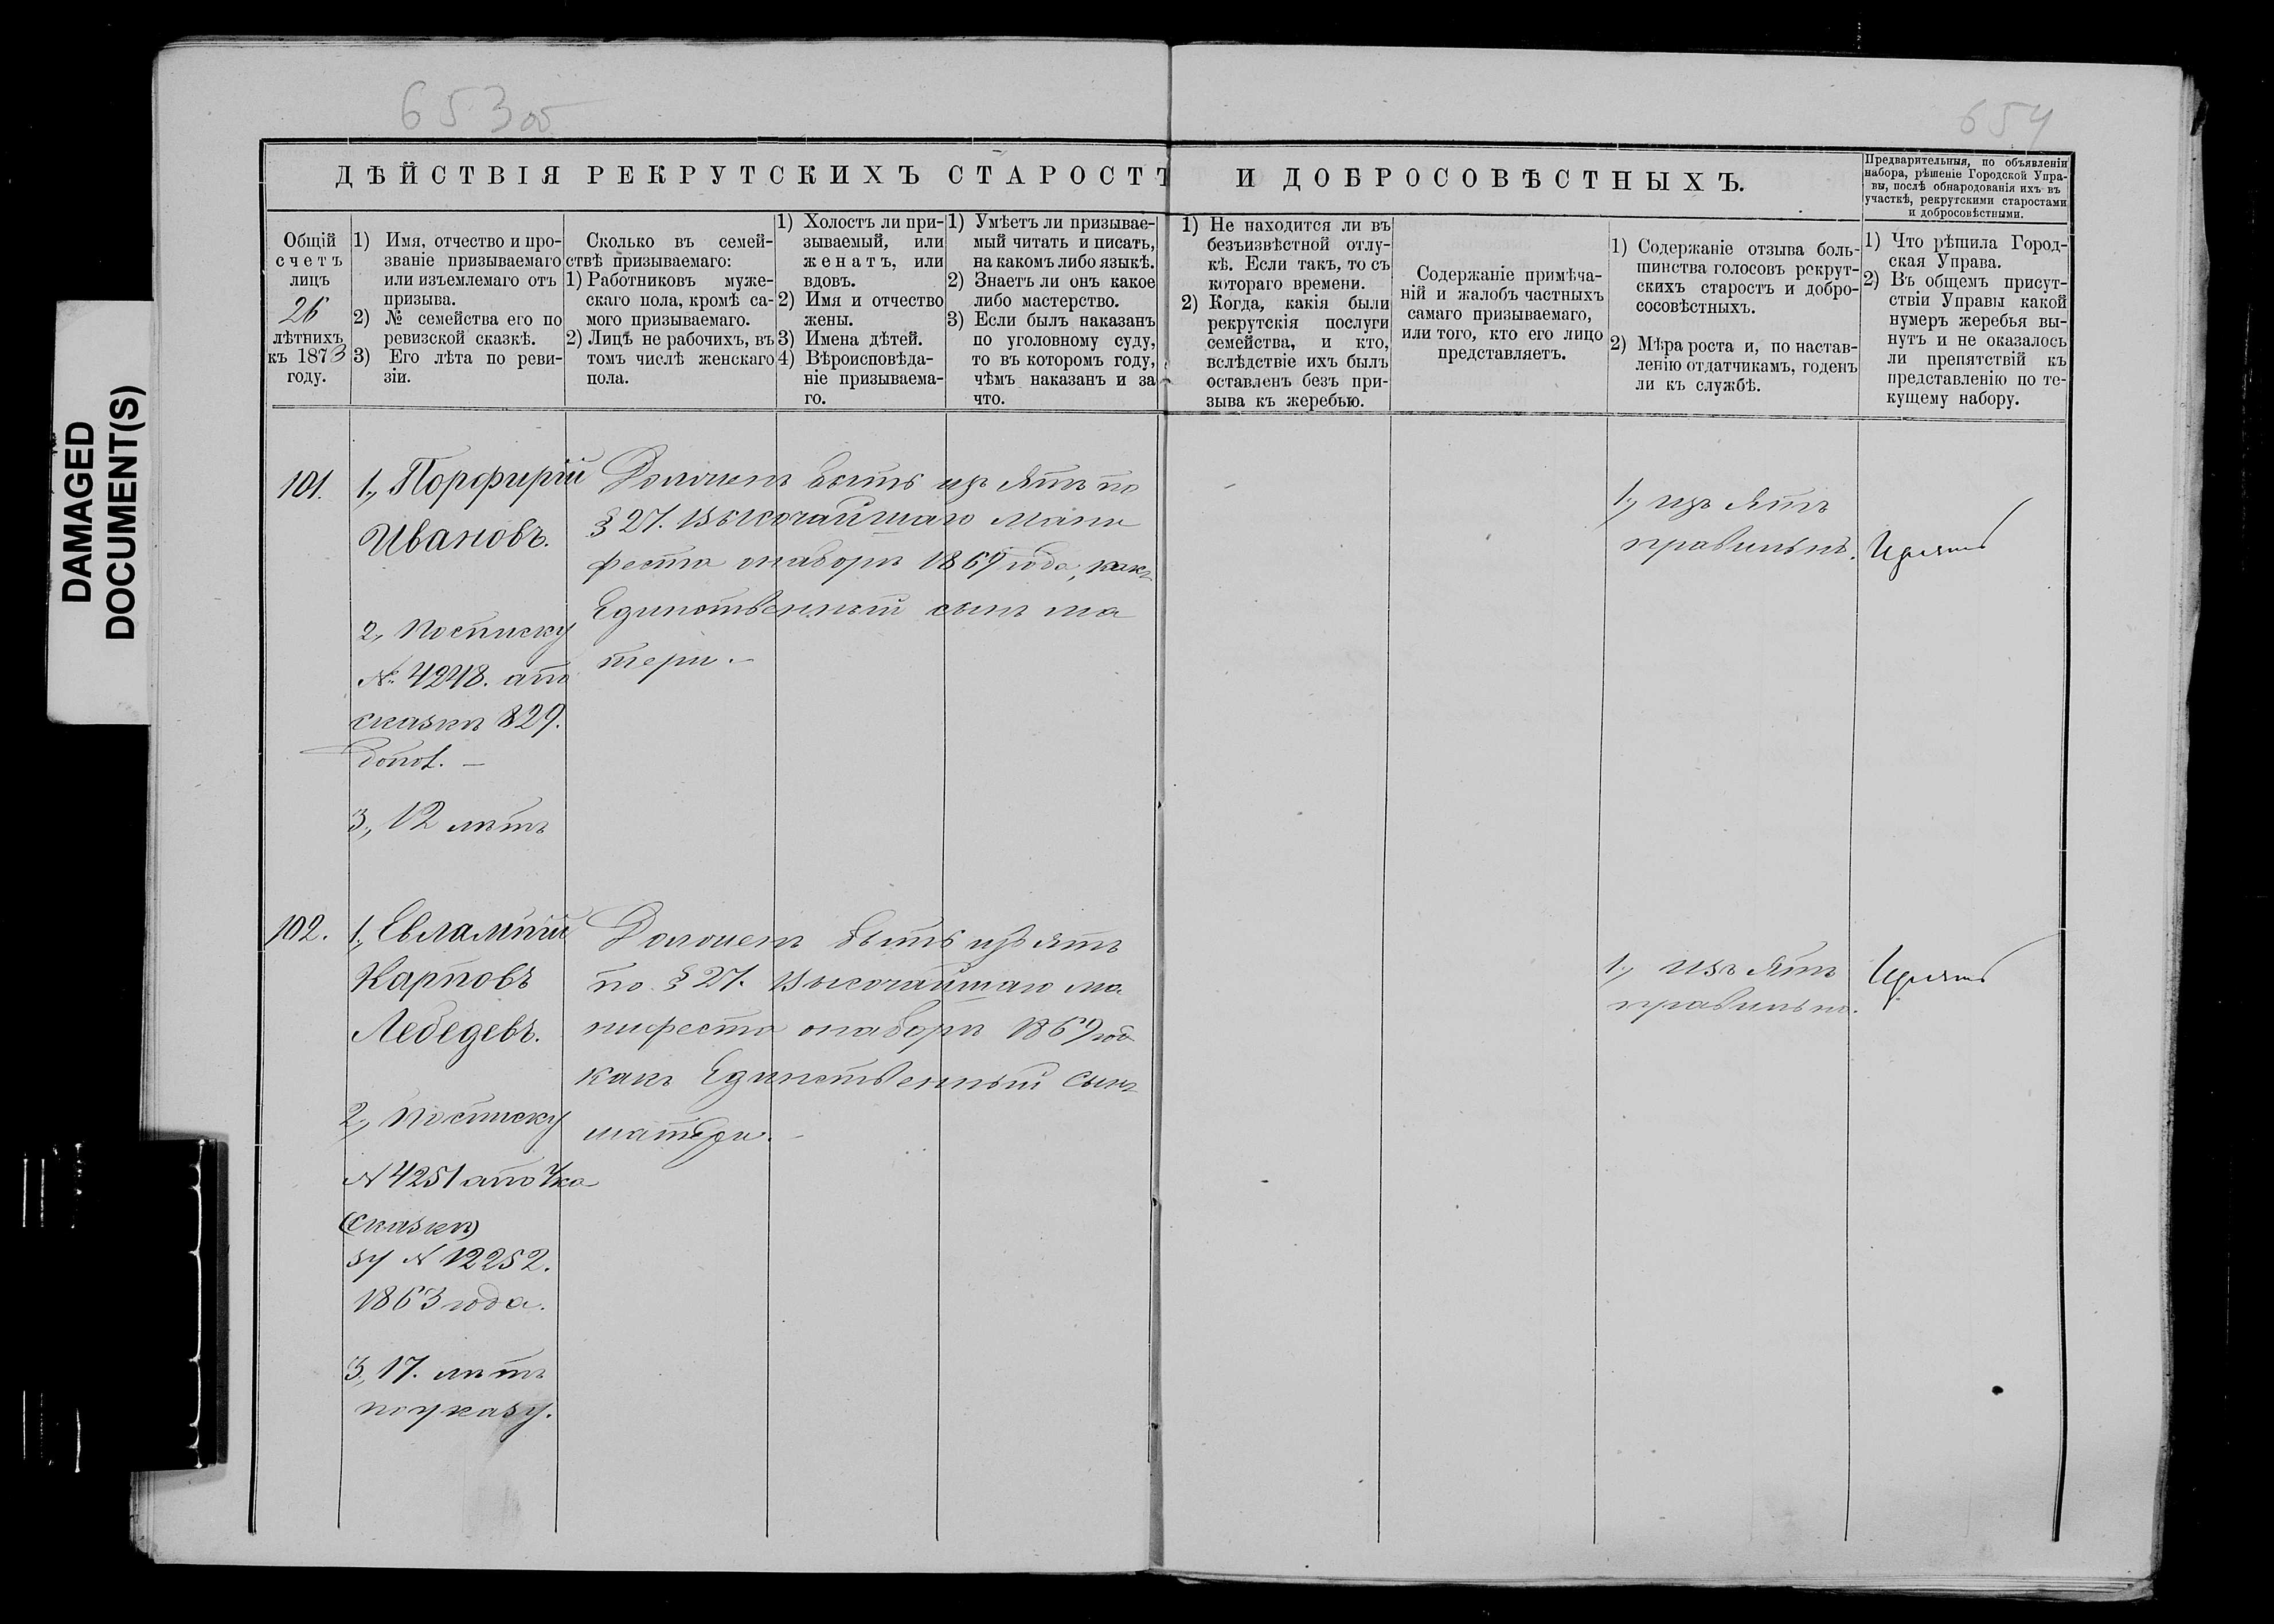 DAMAGED
DOCUMENT(S)
653 об
654
ДѢЙСТВІЯ РЕКРУТСКИХЪ СТАРОСТЪ И ДОБРОСОВѢСТНЫХЪ.
Предварительныя, по объявленіи
набора, рѣшеніе Городской Упра-
вы, послѣ обнародованія ихъ въ
участкѣ, рекрутскими старостами
и добросовѣстными.
Общій
счетъ
лицъ
26
лѣтнихъ
къ 1873
году.
1) Имя, отчество и про-
званіе призываемаго
или изъемлемаго отъ
призыва.
2) № семейства его по
ревизской сказкѣ.
3) Его лѣта по реви-
зіи.
Сколько въ семей-
ствѣ призываемаго:
1) Работниковъ муже-
скаго пола, кромѣ са-
мого призываемаго.
2) Лицъ не рабочихъ, въ
томъ числѣ женскаго
пола.
1) Холостъ ли при-
зываемый, или
женатъ, или
вдовъ.
2) Имя и отчество
жены.
3) Имена дѣтей.
4) Вѣроисповѣда-
ніе призываема-
го.
1) Умѣетъ ли призывае-
мый читать и писать,
на какомъ либо языкѣ.
2) Знаетъ ли онъ какое
либо мастерство.
3) Если былъ наказанъ
по уголовному суду,
то въ которомъ году,
чѣмъ наказанъ и за
что.
1) Не находится ли въ
безъизвѣстной отлу-
кѣ. Если такъ, то съ
котораго времени.
2) Когда, какія были
рекрутскія послуги
семейства, и кто,
вслѣдствіе ихъ былъ
оставленъ безъ при-
зыва къ жеребью.
Содержаніе примѣча-
ній и жалобъ частныхъ
самаго призываемаго,
или того, кто его лицо
представляетъ.
1) Содержаніе отзыва боль-
шинства голосовъ рекрут-
скихъ старостъ и добро-
сосовѣстныхъ.
2) Мѣра роста и, по настав-
ленію отдатчикамъ, годенъ
ли къ службѣ.
1) Что рѣшила Город-
ская Управа.
2) Въ общемъ присут-
ствіи Управы какой
нумеръ жеребья вы-
нутъ и не оказалось
ли препятствій къ
представленію по те-
кущему набору.
101.
1., Порфирій
Ивановъ.
2., По списку
№ 4248. а по
сказкѣ 829.
допол. —
3., 12 лѣтъ
Долженъ быть изъятъ по
§ 27. Высочайшаго Мани
феста о наборѣ 1869 года, какъ
Единственный сынъ ма
тери. —
1., изъятъ
правильно.
Изъятъ
102.
1., Евлампій
Карповъ
Лебедевъ.
2., По списку
№ 4251 а по Ука
(сказкѣ)
зу № 12252.
1863 года.
3., 17. лѣтъ
по указу.
Долженъ быть изъятъ
по § 27. Высочайшаго Ма
нифеста о наборѣ 1869 года
какъ Единственный Сынъ
матери. —
1., изъятъ
правильно.
Изъятъ